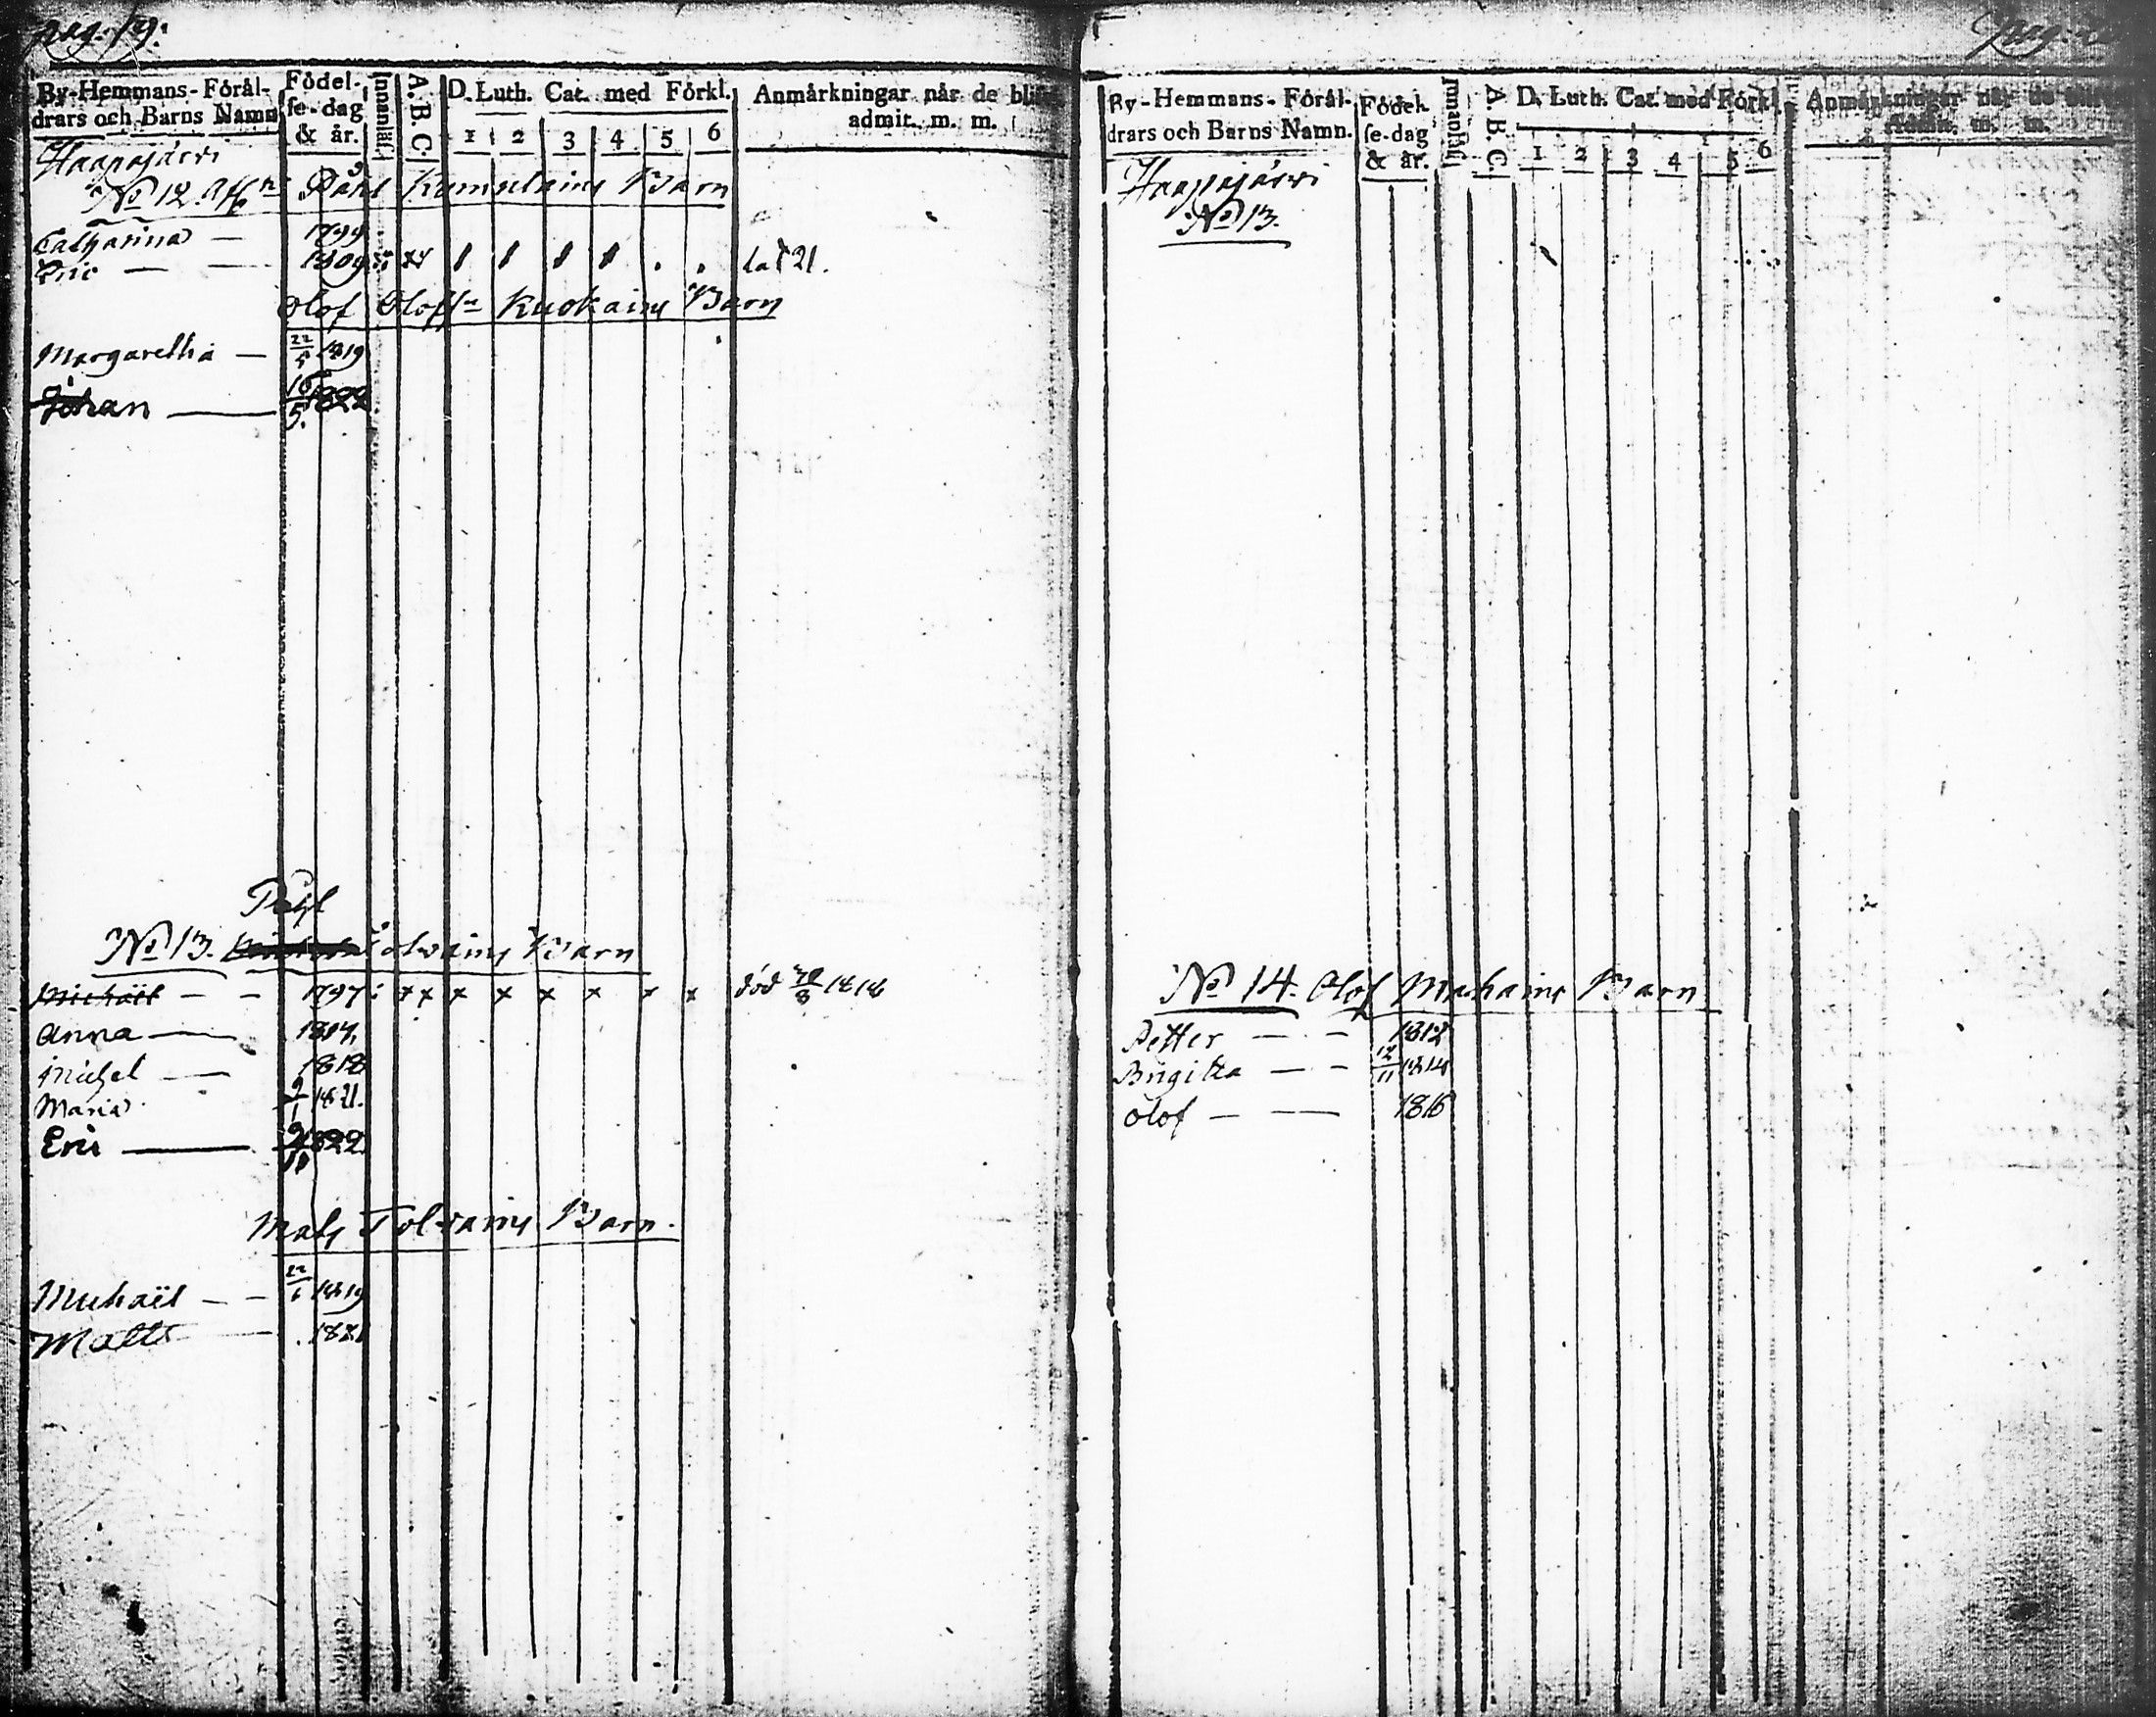 pag. 19.
By-Hemmans-Förål-
drars och Barns Namn
Födel-
se-dag
& år.
Innanläsn.
A. B. C.
D. Luth. Cat. med Förkl.
1 2 3 4 5 6
Anmårkningar når de bli
admit. m. m.
Haapajärvi
No 12. Påhl Barn
Catharina — 1799
Eric — — 1809 lat 21.
Olof Olofsn Kuokains Barn
Margaretha — 22/5 1819
Johan — 16/5. 1822
Påhl
No 13. Tolvains Barn
Michaël - - 1797 x x x x x x x x död 1818
Anna — 1814.
Michel — 1818
Maria 9/1 1821.
Eric — 9/11 1822
Mats Tolvains Barn.
Michaël - - 1819
Matts — 1821
pag.
By-Hemmans-Förål-
drars och Barns Namn.
Födel-
se-dag
& år.
Innanläsn
A. B. C.
D. Luth. Cat. med Förkl.
1 2 3 4 5 6
Anmårkningar når de
Admit. m. m.
Haapajärvi
No 13.
No 14. Olof Muhains Barn
Petter — - 1812
Brigitta — - 12/11 1814
Olof — — 1816